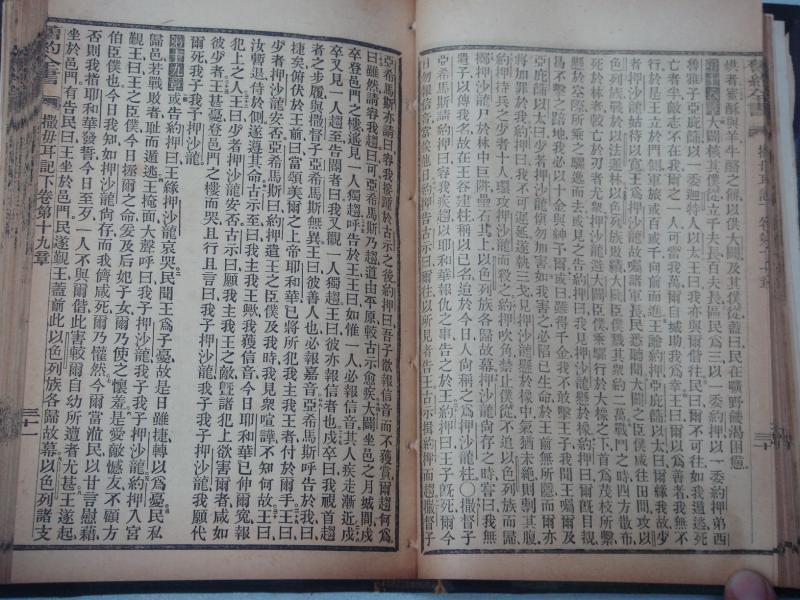 供者蜜酥與羊牛酪之餅以供大闢及其僕從蓋曰民在曠野饑渴困憊
第十八章大闢核其僕從立千夫長百夫長區民為三以一委約押以一委約押弟西
魯雅子亞庇篩以一委迦特人以太王曰我亦與爾偕往民曰爾不可往如我遁逃死
亡者半敵志不在我爾之一人可當我萬爾自城助我為幸王曰爾以為善者我無不
行於是王立於門側軍旅或百或千向前而進王諭約押亞庇篩以太曰爾緣我故少
者押沙龍姑待以寬王爲押沙龍故囑諸軍長民悉聽聞大闢之臣僕咸往田間攻以
色列族戰於以法蓮林以色列族敗績大闢臣僕戮其衆約二萬戰鬥之時四方散布
死於林者較亡於刃者尤多押沙龍遇大闢臣僕乘騾行於大橡之下首爲茂枝所繫
懸於空際所乘之騾逸而去或見之告約押曰我見押沙龍懸於橡約押曰爾旣目視
曷不擊之踣地我必以十金與紳予爾或曰雖得千金我不敢擊王子我聞王囑爾及
亞庇篩以太曰少者押沙龍愼勿加害如我害之必陷己生命於王前無所隱而爾亦
將加罪於我約押曰我不可遲延遂執三戈見押沙龍懸於橡中氣猶未絶則刺其腹
約押待兵之少者十人環攻押沙龍而殺之約押吹角禁止僕從不追以色列族而歸
擲押沙龍尸於林中巨阱壘石其上以色列族各歸故幕押沙龍尙存之時容曰我無
遺子以傳我名故在王谷建柱稱以己名迨於今日人尙稱之爲押沙龍柱〇撒督子
亞希馬斯曰容我趨以耶和華報仇之事告之於王約押曰王子旣死爾今
日勿報信音當俟他日約押告古示曰爾往以所見者告王古示揖約押而趨撒督子
亞希馬斯亦請曰容我接踵於古示之後約押曰吾子欲報信音而不獲賞爾趨何爲
曰雖然請容我趨曰可亞希馬斯乃趨道由平原較古示愈疾大闢坐邑之月城間戍
卒登邑門之樓遙見一人獨趨呼告於王王曰如惟一人必報信音其人疾走漸近戍
卒又見一人趨至告閽者曰我又觀一人獨趨王曰彼亦報信者也戍卒曰我視首趨
者之步履與撒督子亞希馬斯無異王曰彼善人也必報嘉音亞希馬斯呼告於我曰
捷矣俯伏於王前曰當頌美爾之上帝耶和華已將所犯我主我王者付於爾手王曰
少者押沙龍安否亞希馬斯曰約押遣王之臣僕及我時我見衆喧譁不知何故王曰
汝暫退侍於側遂遵其命古示至曰我主我王歟我獲信音今日耶和華已伸爾冤報
犯上之人王曰少者押沙龍安否古示曰願我主我王之敵曁諸犯上欲害爾者咸如
彼少者王甚憂登邑門之樓而哭且行且言曰我子押沙龍我子押沙龍我願代
爾死我子我子押沙龍
第十九章或告約押曰王緣押沙龍哀哭民聞王爲子憂故是日雖捷轉以爲憂民私
歸邑若戰敗者耻而遁逃王掩面大聲呼曰我子押沙龍我子我子押沙龍約押入宮
曰王之臣僕今日拯爾之命爰及后妃子女爾乃使之懷羞是愛敵憾友不顧方
伯臣僕也今日我知如押沙龍尙存而我儕咸死爾乃懽然今爾當涖民以甘言慰藉
否則我指耶和華發誓今日至夕一人不與爾偕此害較爾自幼所遭者尤甚王遂起
坐於邑門有告民曰王坐於邑門民遂覲王蓋前此以色列族各歸故幕以色列諸支
舊約全書
撒母耳記下卷第十九章
三十一
三十